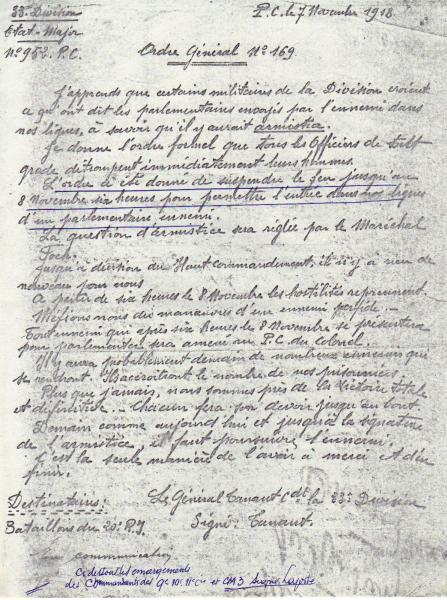 33e Division
Etat-Major
P.C. le 7 Novembre 1918.
N° 952. P.C.
Ordre Général N° 169
J'apprends que certains militaires de la Division croient
ce qu'ont dit les parlementaires envoyés par l'ennemi dans
nos lignes, à savoir qu'il y aurait armistice.
Je donne l'ordre formel que tous les Officiers de tout
grade détrompent immédiatement leurs hommes.
L'ordre a été donné de suspendre le feu jusqu'au
8 Novembre six heures pour permettre l'entrée dans nos lignes
d'un parlementaire ennemi.
La question d'armistice sera réglée par le Maréchal
Foch.
Jusqu'à décision du Haut commandement, il n'y a rien de
nouveau pour nous
A partir de six heures le 8 Novembre les hostilités reprennent
Méfions nous des manœuvres d'un ennemi perfide. _
Tout ennemi qui après six heures le 8 Novembre se présentera
pour parlementer sera amené au P.C. du Colonel.
Il y aura probablement demain de nombreux ennemis qui
se rendront. Ils accroîtront le nombre de nos prisonniers.
Plus que jamais, nous sommes près de la Victoire totale
et définitive. _ Chacun fera son devoir jusqu'au bout.
Demain comme aujourd'hui et jusqu'à la signature
de l'armistice, il faut poursuivre l'ennemi.
C'est la seule manière de l'avoir à merci et d'en
finir.
Destinataires:
Le Général Tanant Cdt la 33e Division
Bataillons du 20e R.I.
Signé: Tanant.
communication
Ci dessous les émargements
des Commandants des 9e 10e 11e Cies et CM3 signé